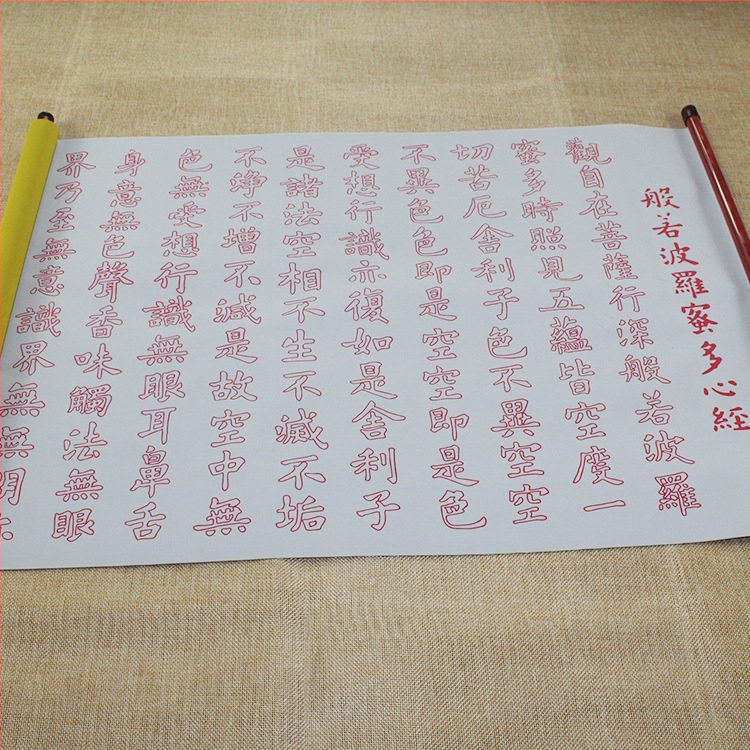 般若波羅蜜多心經
觀自在菩薩行深般若波羅
蜜多時照見五蘊皆空度一
切苦厄舍利子色不異空空
不異色色即是空空即是色
受想行識亦復如是舍利子
是諸法空相不生不滅不垢
不淨不增不減是故空中無
色無受想行識無眼耳鼻舌
身意無色聲香味觸法無眼
界乃至無意識界無無明